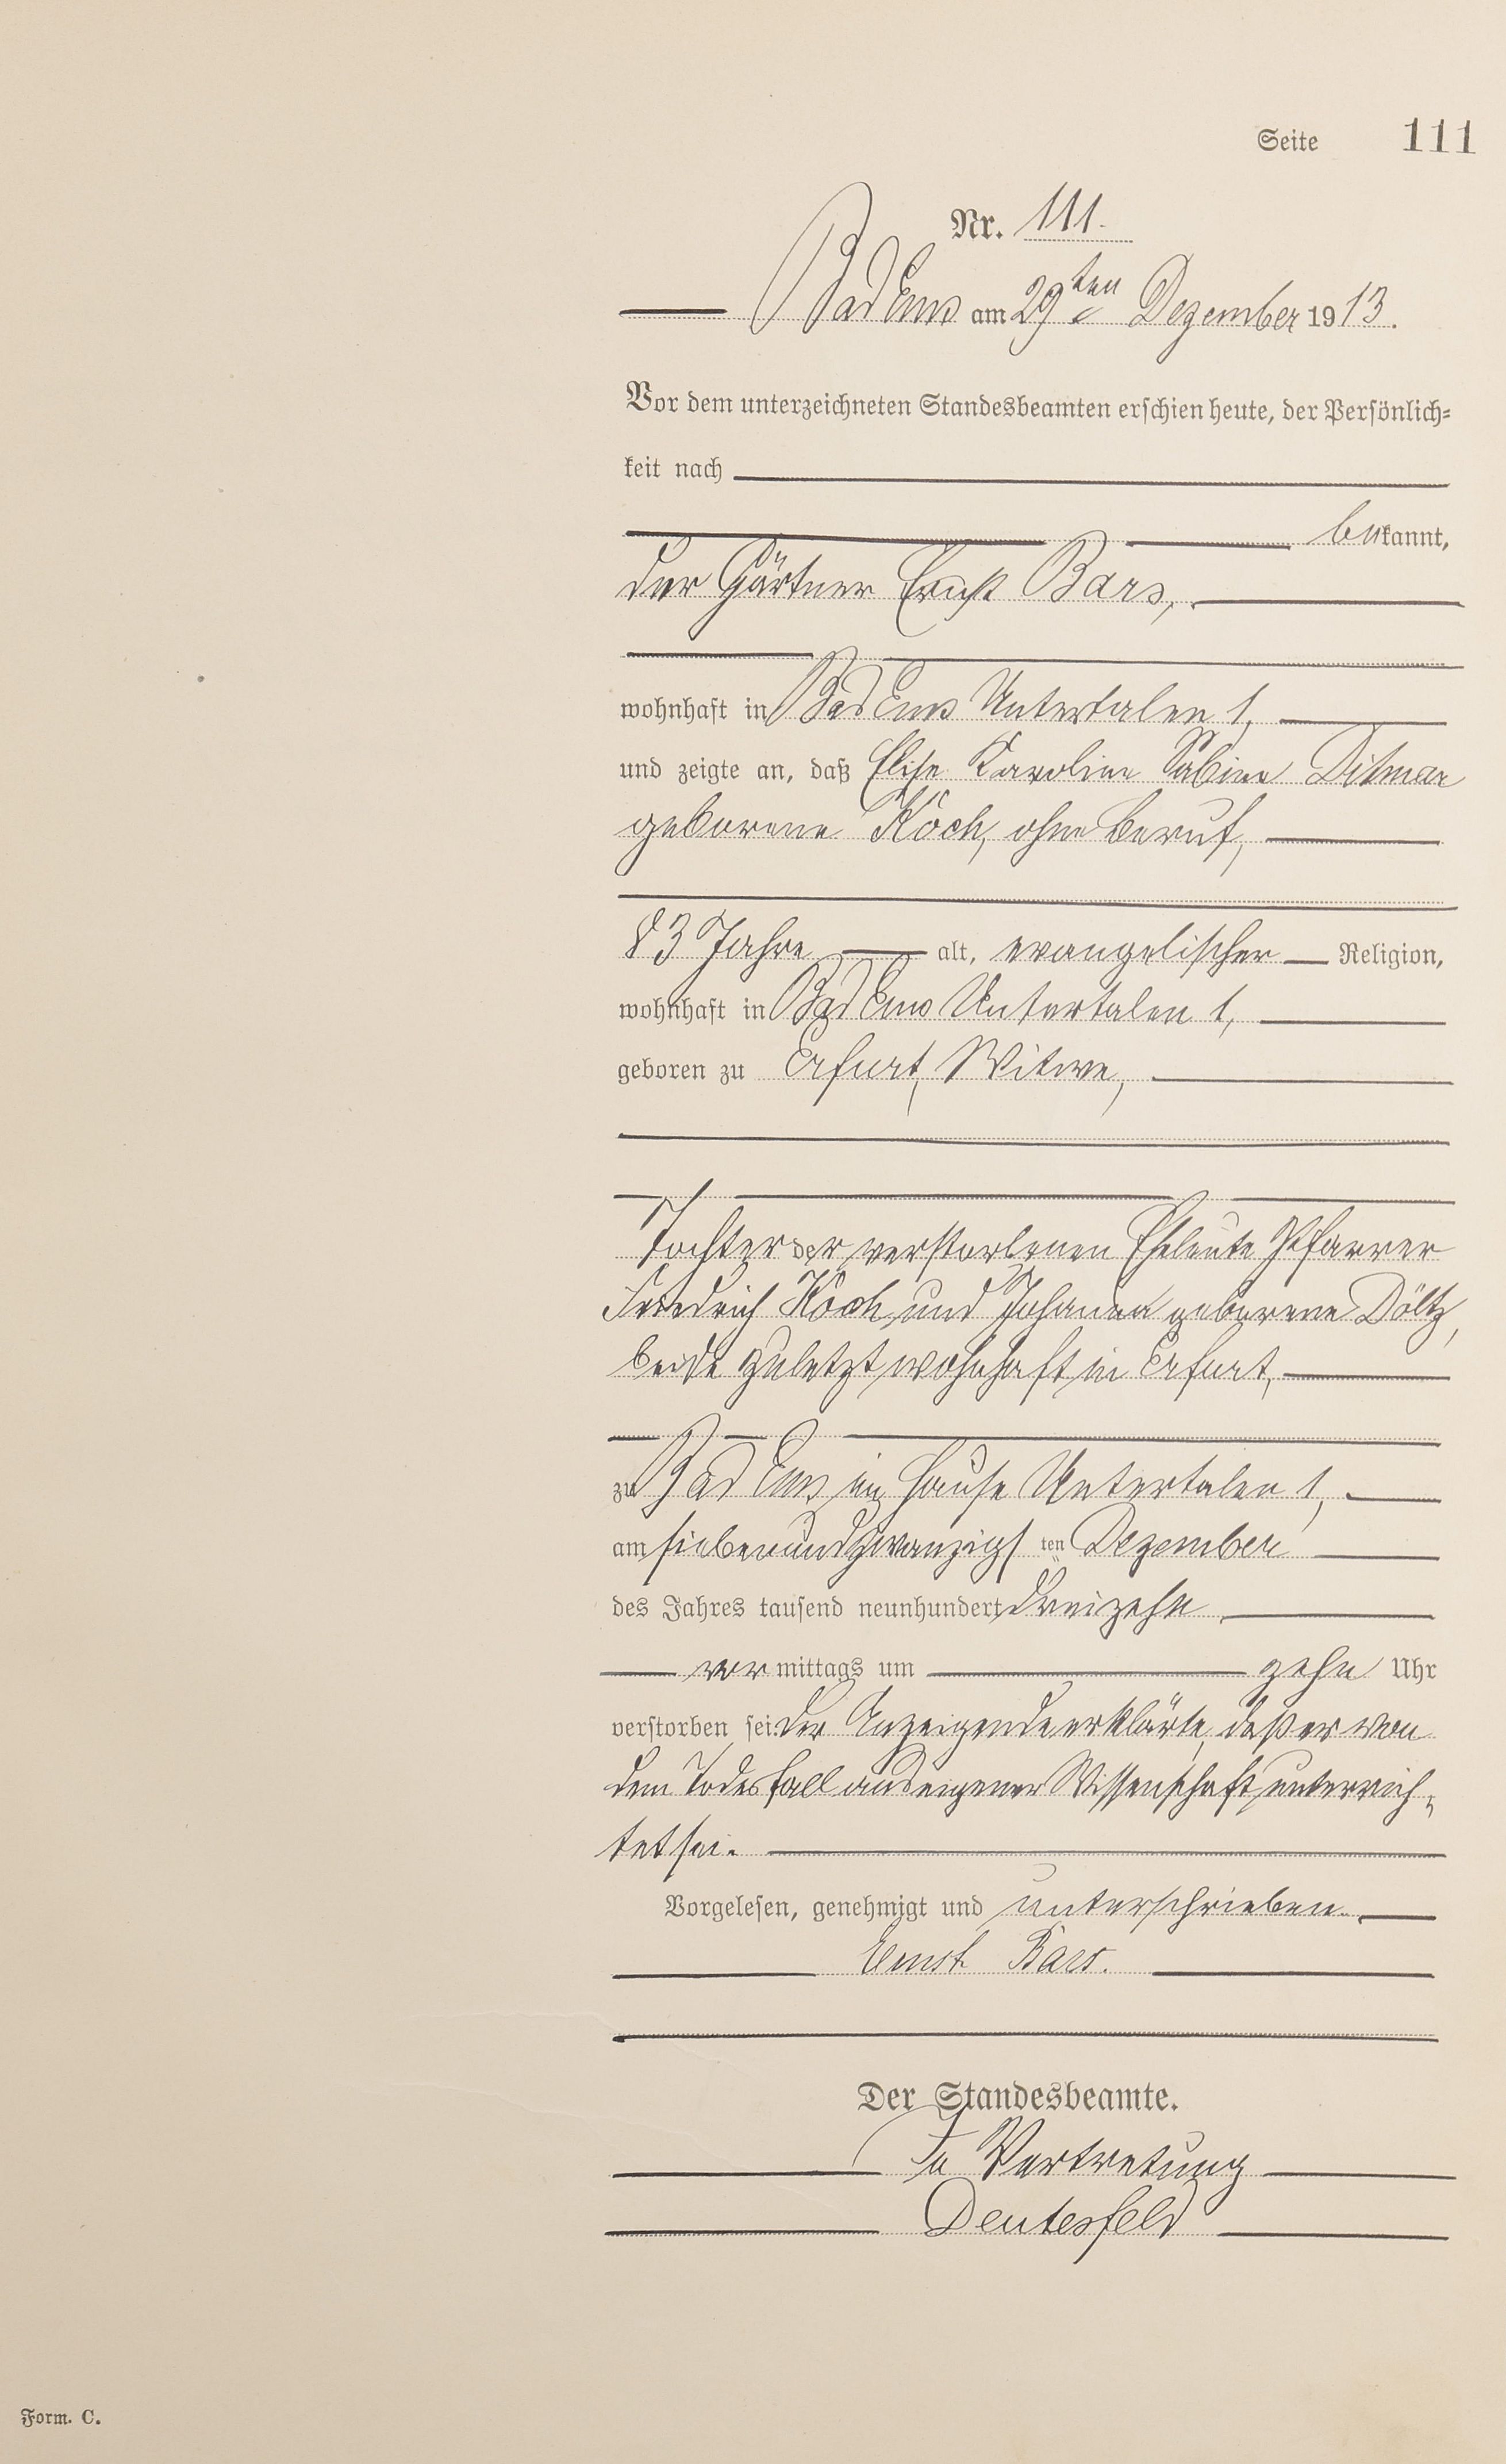 Seite 111
Nr. 111.
Bad Ems am 29ten Dezember 1913.
Vor dem unterzeichneten Standesbeamten erschien heute, der Persönlich=
keit nach
bekannt,
der Gärtner Ernst Bars,
wohnhaft in Bad Ems Untertalen 1,
und zeigte an, daß Elise Karoline Sabine Ditmar
geborene Koch, ohne Beruf,
83 Jahre alt, evangelischer Religion,
wohnhaft in Bad Ems Untertalen 1,
geboren zu Erfurt, Witwe,
Tochter der verstorbenen Eheleute Pfarrer
Friedrich Koch und Johanna geborene Döltz,
beide zuletzt wohnhaft in Erfurt,
zu Bad Ems im Hause Untertalen 1,
am siebenundzwanzigsten Dezember
des Jahres tausend neunhundert dreizehn
vor mittags um zehn Uhr
verstorben sei. Der Anzeigende erklärte, daß er von
dem Todesfall aus eigener Wissenschaft unterrich=
tet sei.
Vorgelesen, genehmigt und unterschrieben.
Ernst Bars.
Der Standesbeamte.
In Vertretung
Deutesfeld
Form. C.